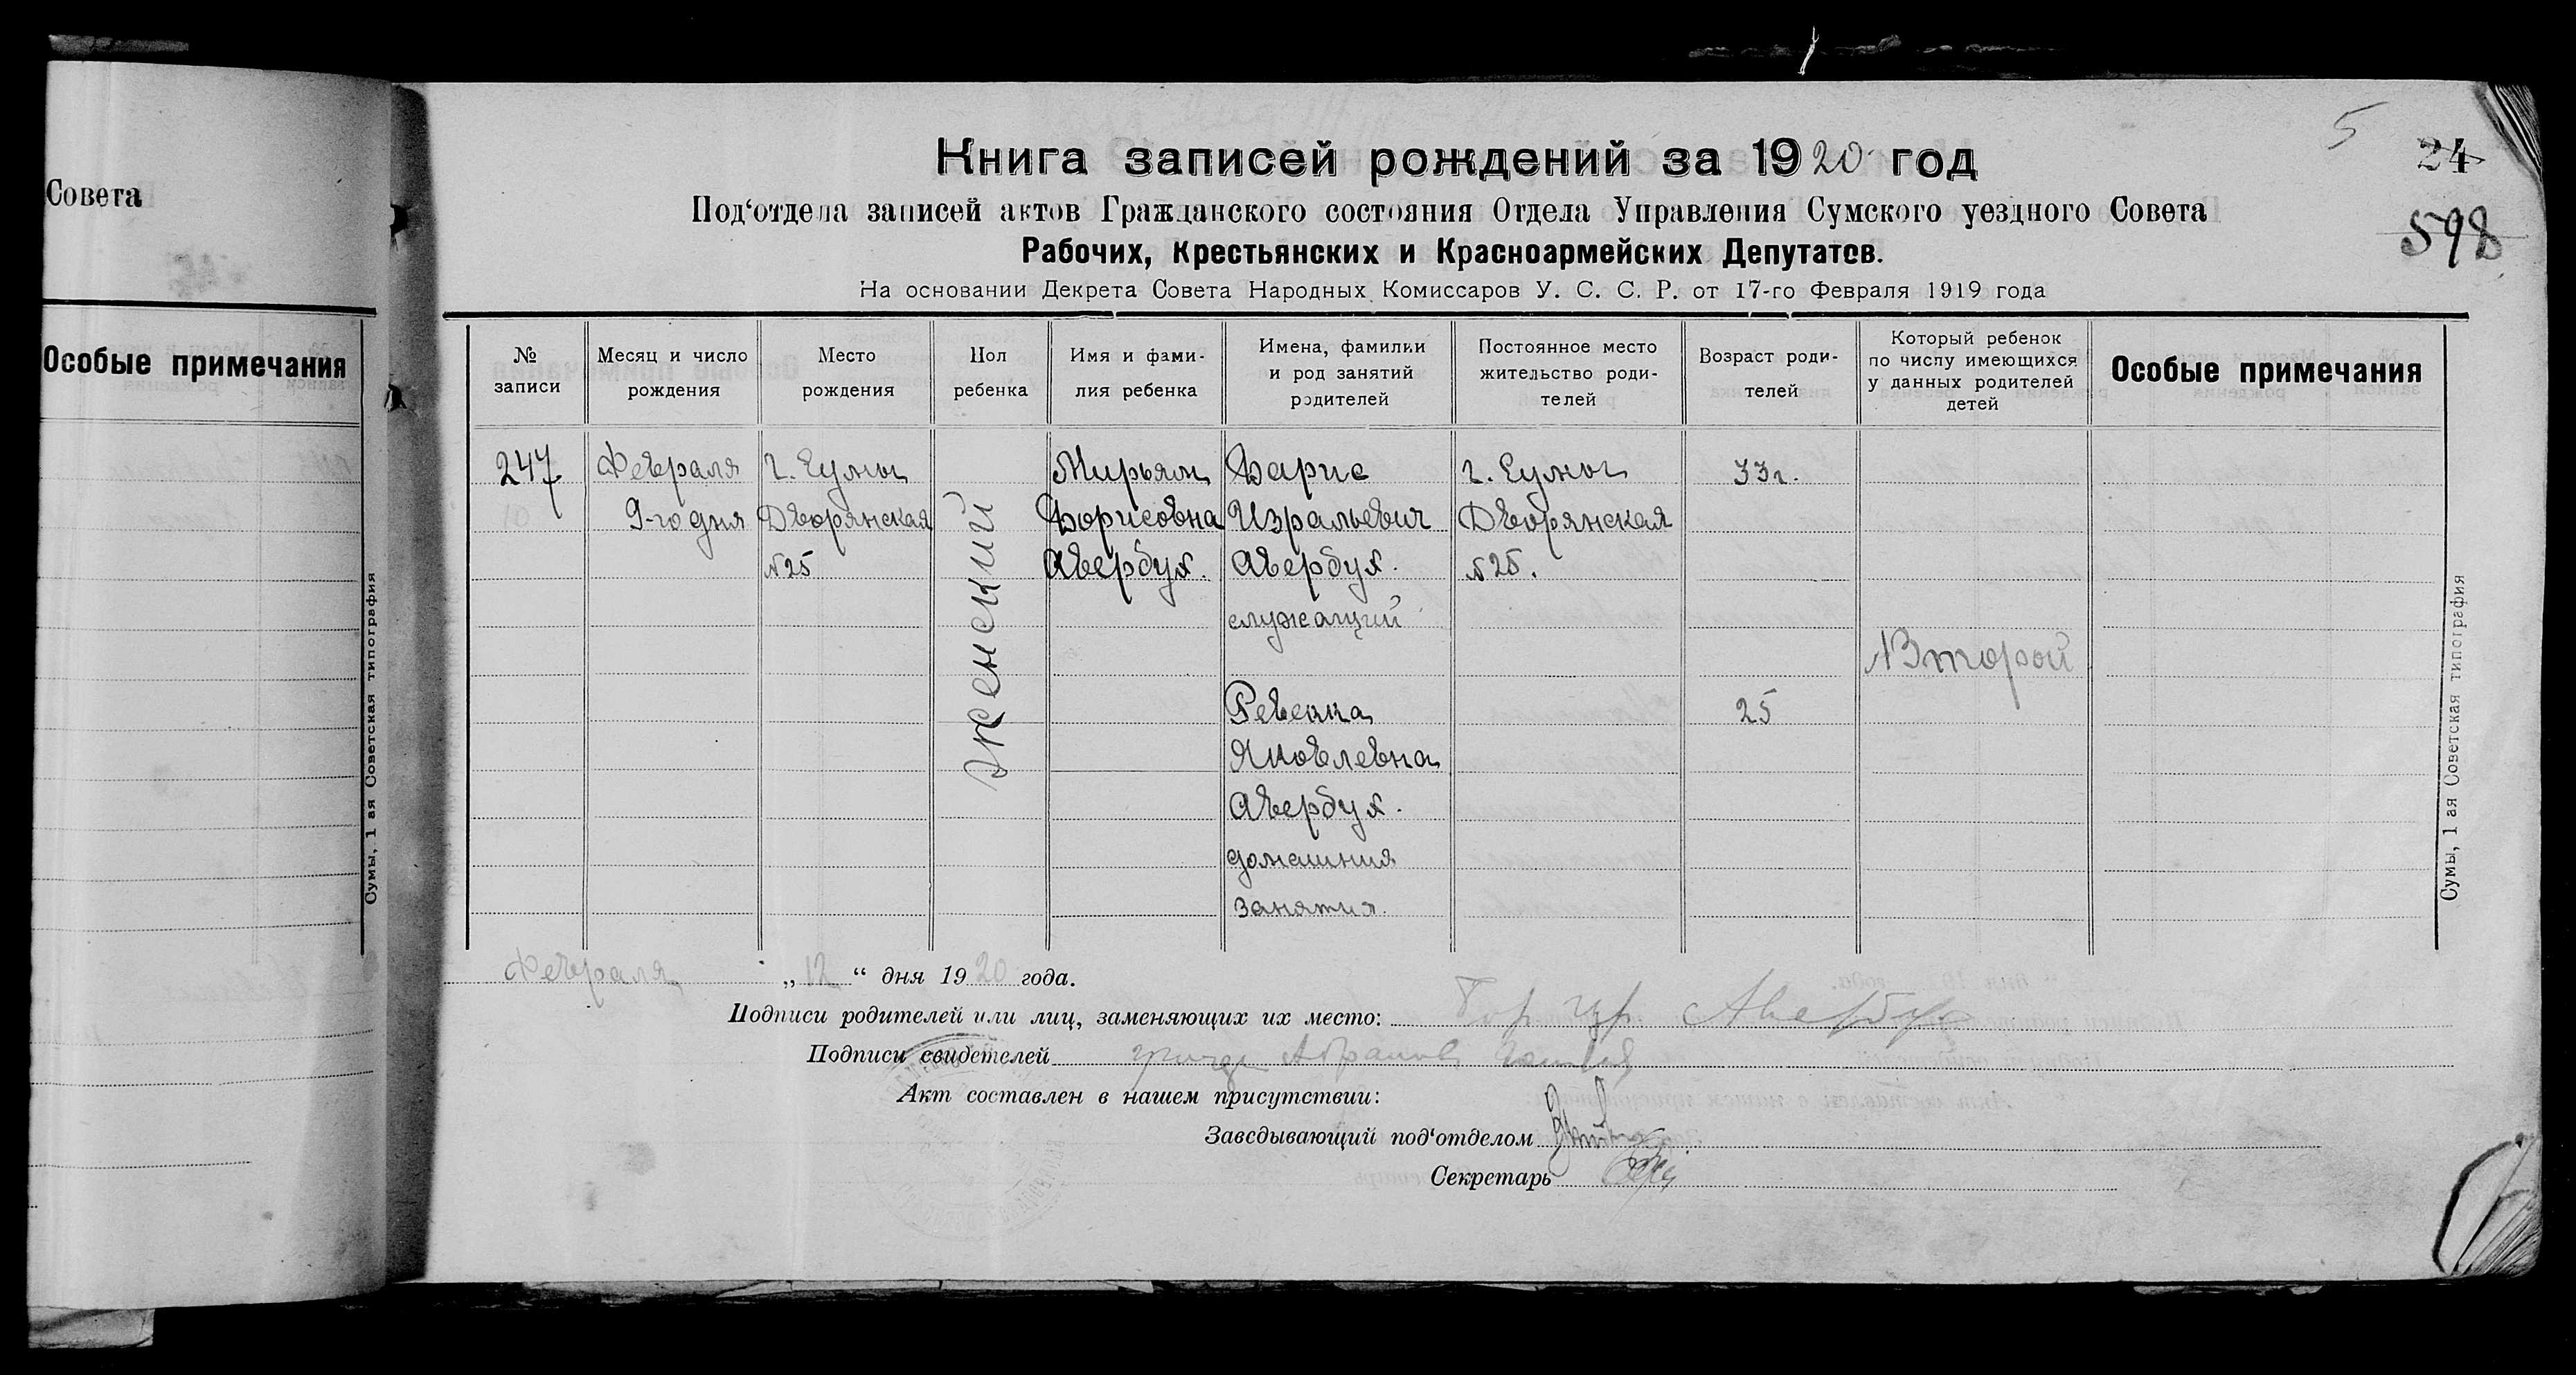 Совета
Особые примечания
Сумы, 1 ая Советская типография
5
24
598
Книга записей рождений за 1920 год
Под‘отдела записей актов Гражданского состояния Отдела Управления Сумского уездного Совета
Рабочих, Крестьянских и Красноармейских Депутатов.
На основании Декрета Совета Народных Комиссаров У. С. С. Р. от 17-го Февраля 1919 года
№
записи
Месяц и число
рождения
Место
рождения
Пол
ребенка
Имя и фами-
лия ребенка
Имена, фамилии
и род занятий
родителей
Постоянное место
жительство роди-
телей
Возраст роди-
телей
Который ребенок
по числу имеющихся
у данных родителей
детей
Особые примечания
247
Февраля
9-го дня
г. Сумы
Дворянская
№25
женский
Мирьям
Борисовна
Авербух.
Барис
Изральевич
Авербух.
служащий
Ревекка
Яковлевна
Авербух.
домашния
занятия.
г. Сумы
Дворянская
№25.
33 г.
25
Второй
Сумы, 1 ая Советская типография
Февраля „12“ дня 1920 года.
Подписи родителей или лиц, заменяющих их место: Авербух
Подписи свидетелей
Акт составлен в нашем присутствии:
Заведывающий под‘отделом
Секретарь